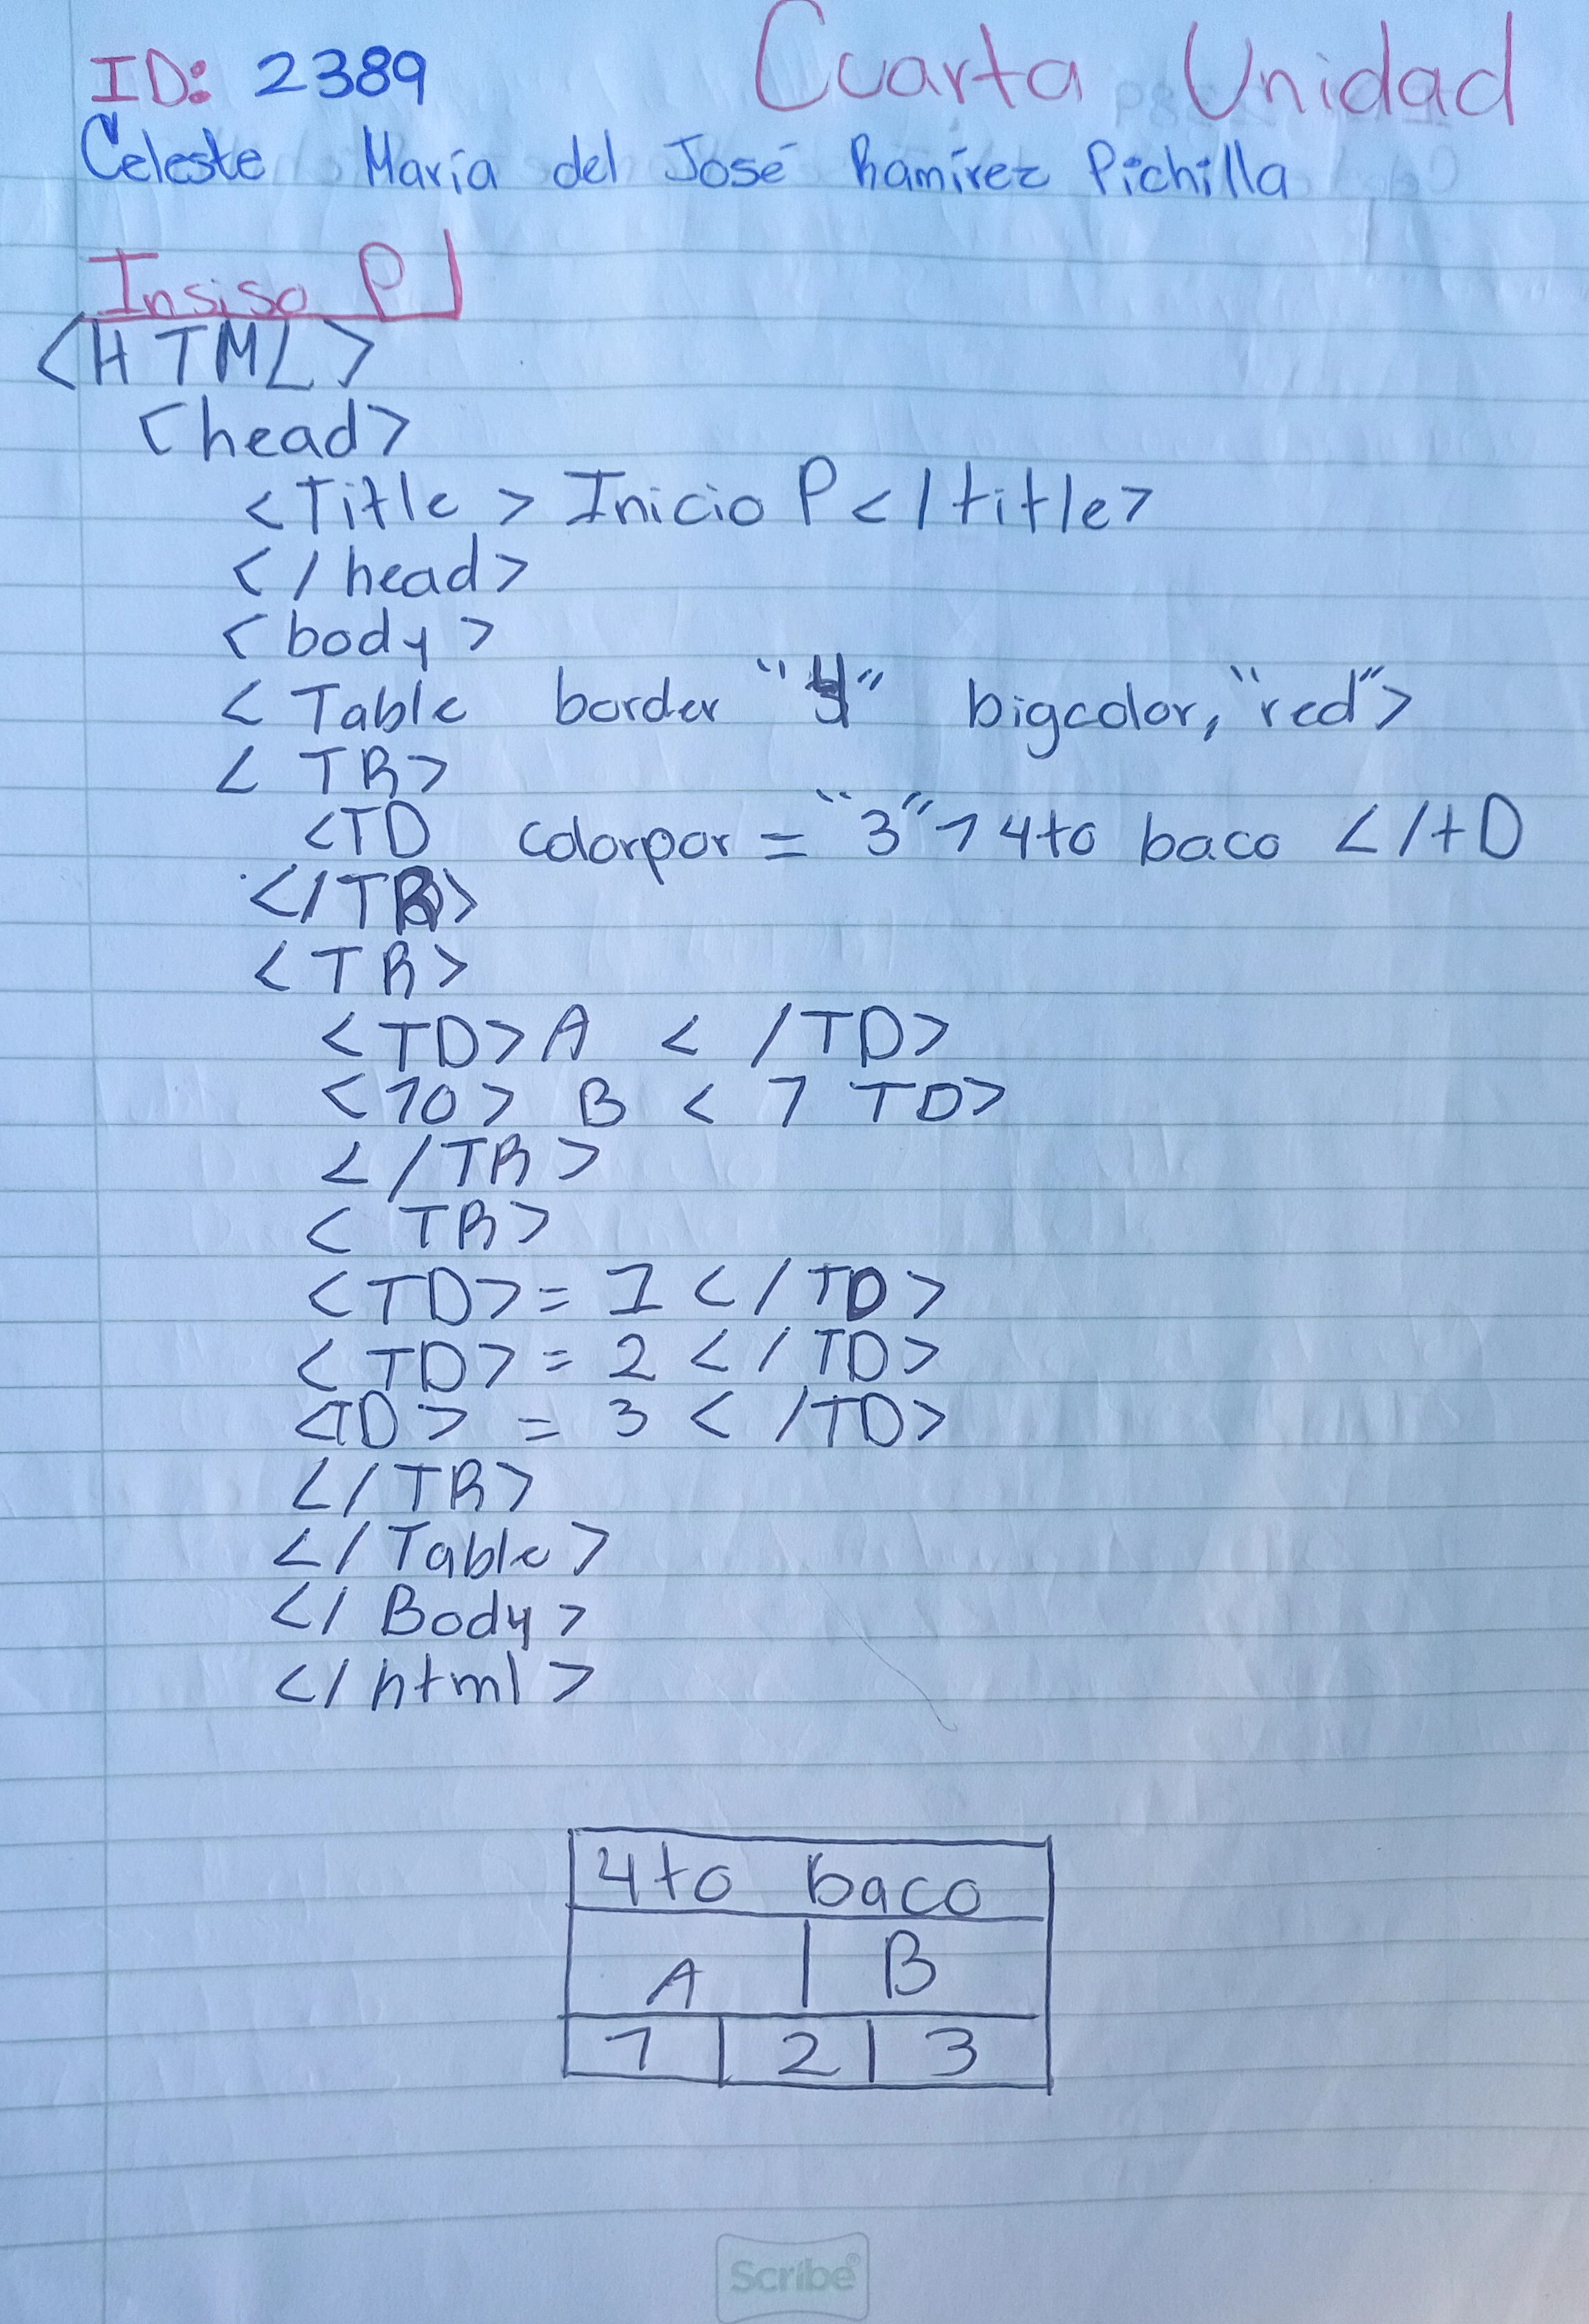 ID: 2389 Cuarta Unidad
Celeste María del José Ramírez Pichilla
Insiso P
<HTML>
<head>
<Title> Inicio P</title>
</head>
<body>
<Table border "4" bigcolor, "red">
<TR>
<TD colorpor = "3"> 4to baco </tD
</TR>
<TR>
<TD> A < /TD>
<10> B < 7 TD>
</TR>
<TR>
<TD>= 1 </TD>
<TD>= 2 </TD>
<TD> = 3 < /TD>
</TR>
</Table>
</Body>
</html>
4to baco
A B
1 2 3
Scribe®